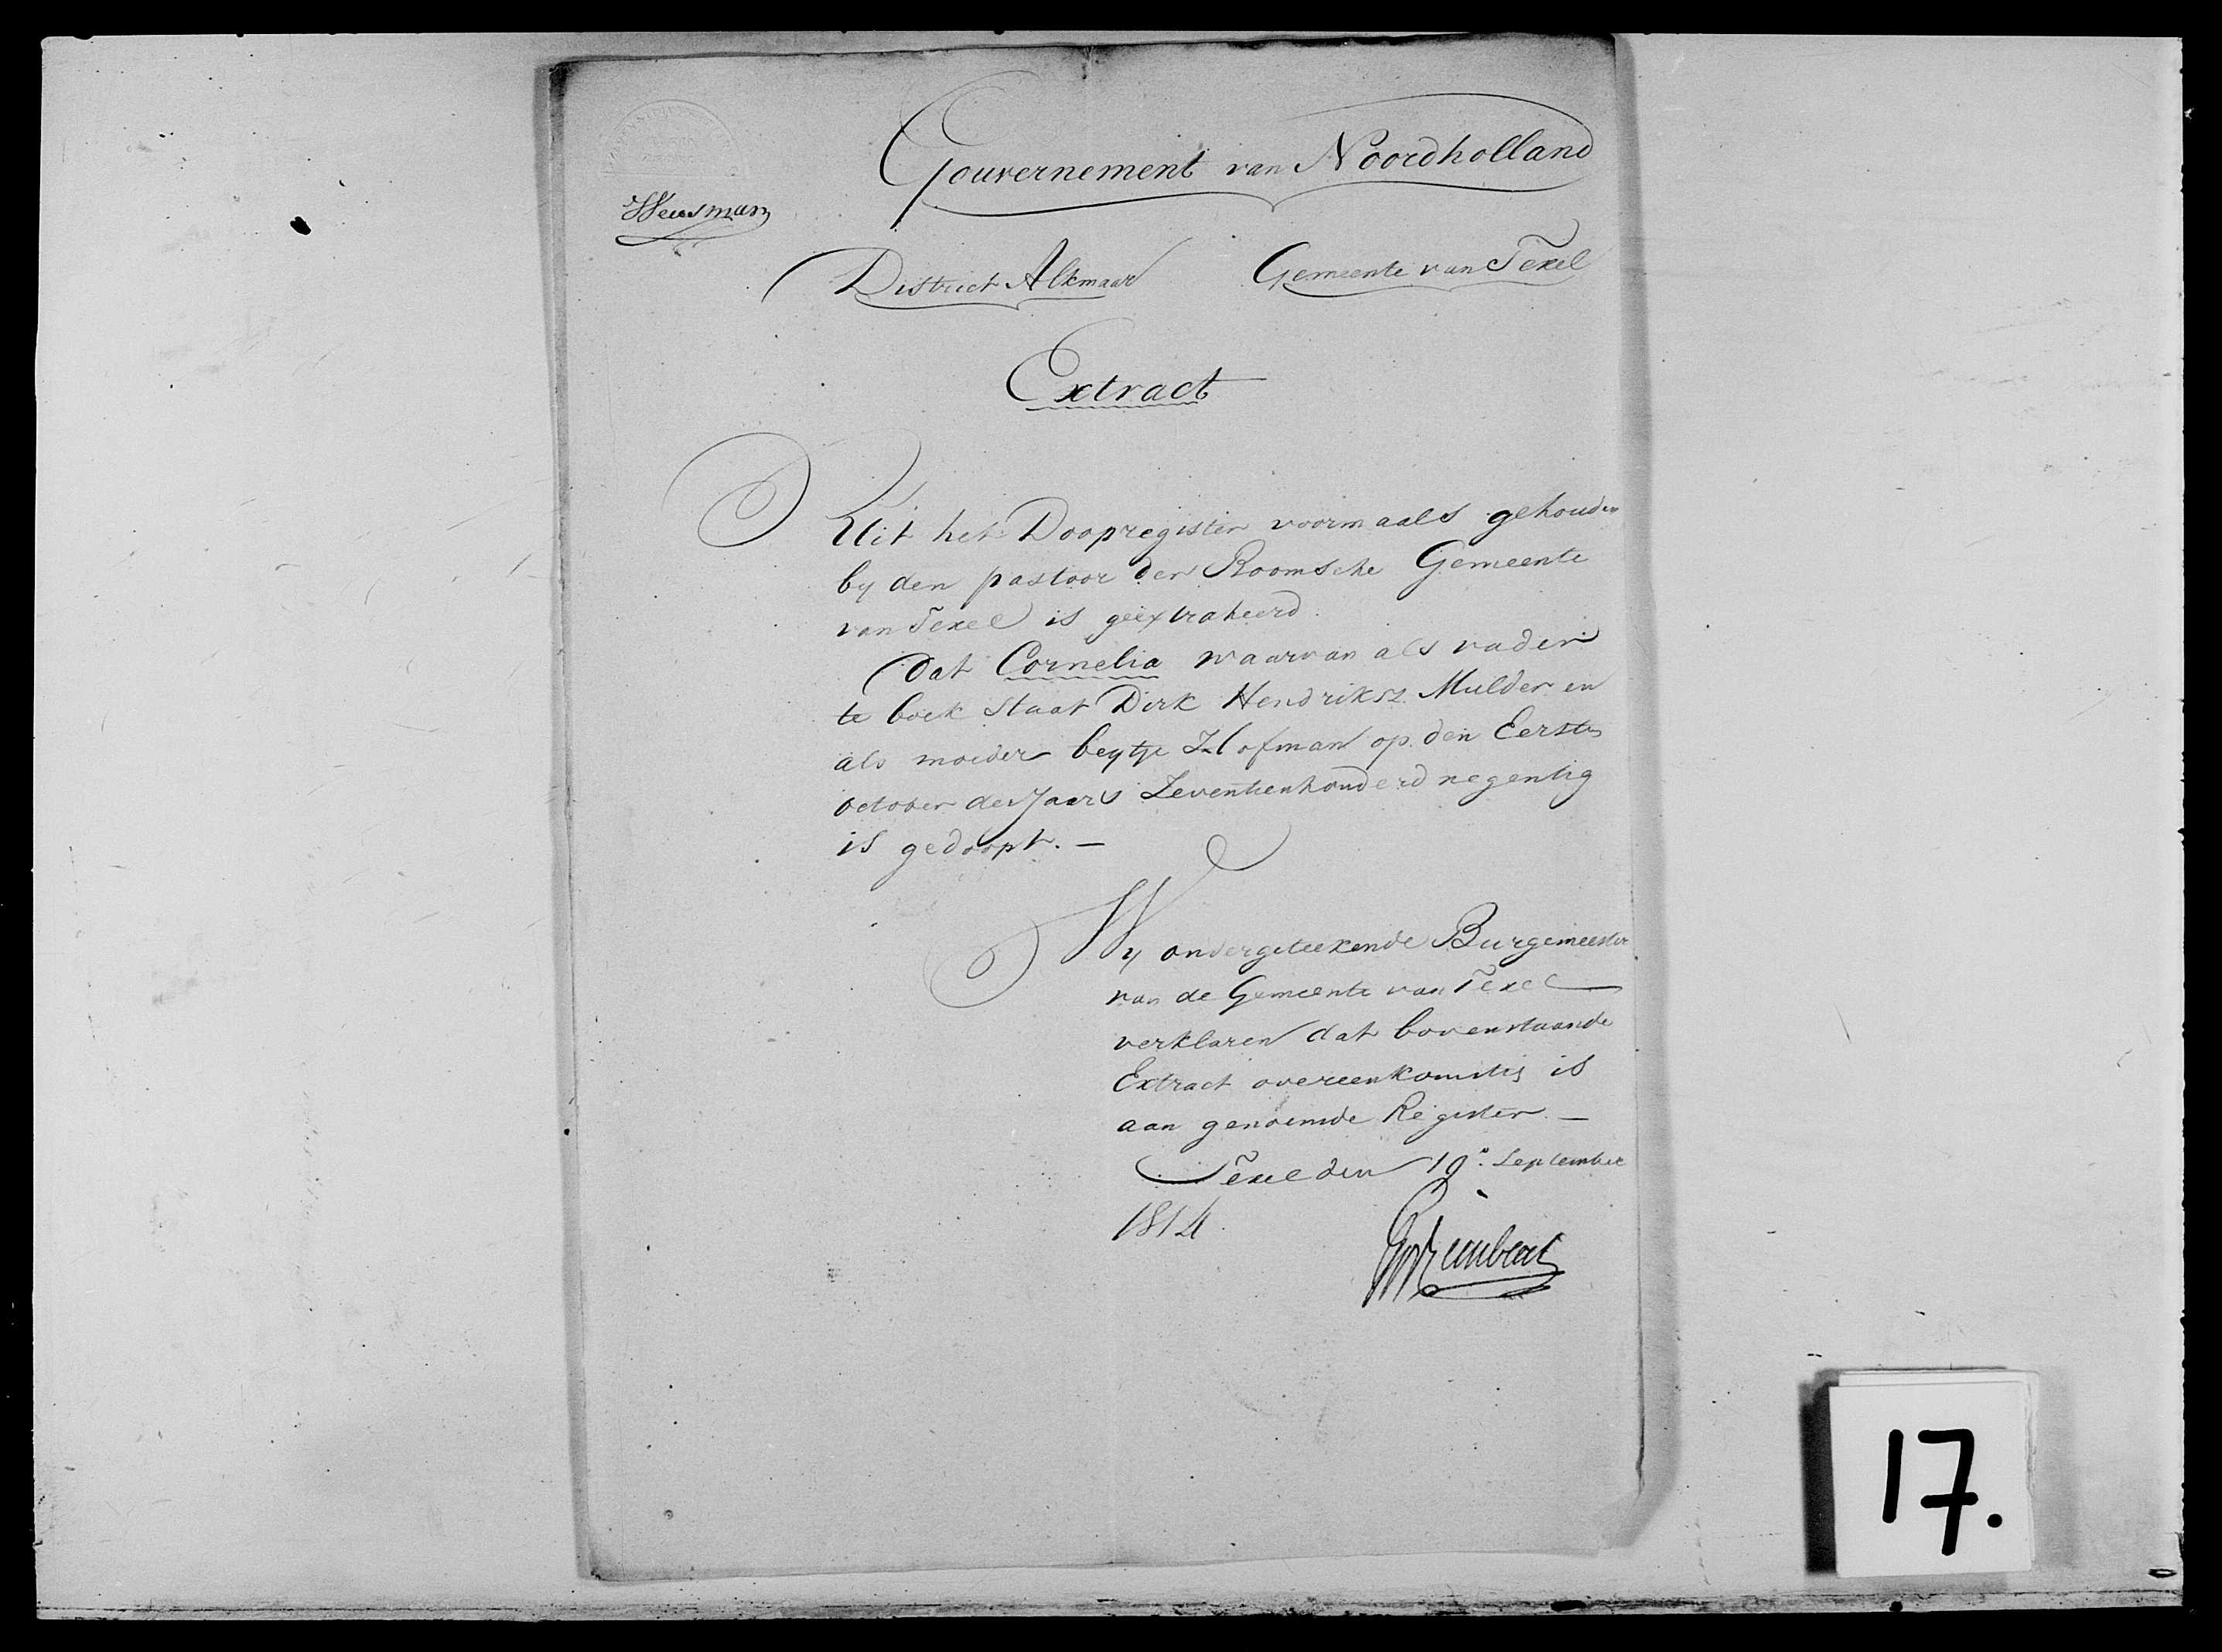 Gouvernement van Noordholland
District Alkmaar Gemeente van Texel
Extract
Uit het Doopregister voormaals gehouden
by den pastoor der Roomsche Gemeente
van Texel is geëxtraheerd
Dat Cornelia waarvan als vader
te boek staat Dirk Hendriksz. Mulder en
als moeder beytje Hofman op den Eersten
october des Jaars Zeventienhonderd negentig
is gedoopt. —
Wy ondergeteekende Burgemeester
van de Gemeente van Texel
verklaren dat bovenstaande
Extract overeenkomstig is
aan genoemde Register. —
Texel den 19e. September
1814.
17.